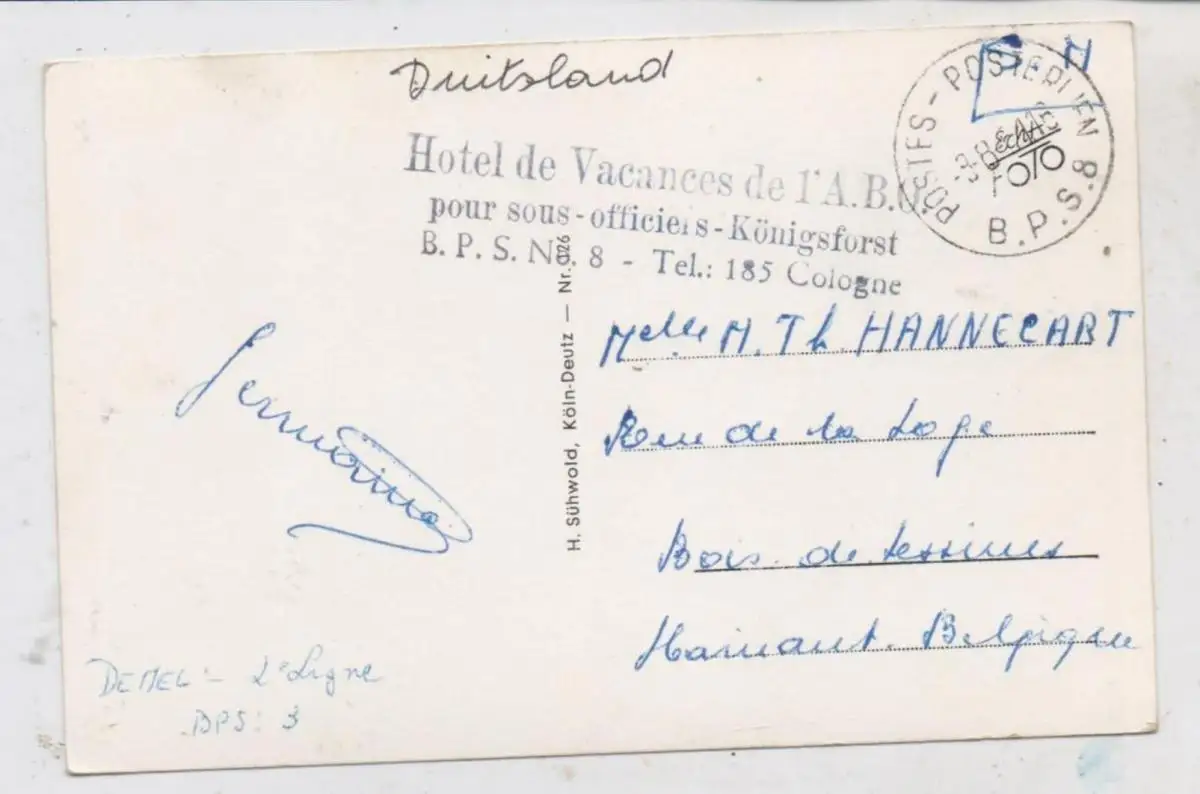 Duitsland
S. M
POSTES - POSTERIJEN
B.P.S.8
Echte
FOTO
Hotel de Vacances de l'A.B.O.
pour sous-officiers-Königsforst
B. P. S. No. 8 - Tel.: 185 Cologne
Melle M. Th. HANNECART
Rue de la Loge
Bois. de Lessines
Hainaut. Belgique
H. Sühwold, Köln-Deutz — Nr. 026
Germaine
DEMEL - 2e Ligne
BPS: 3